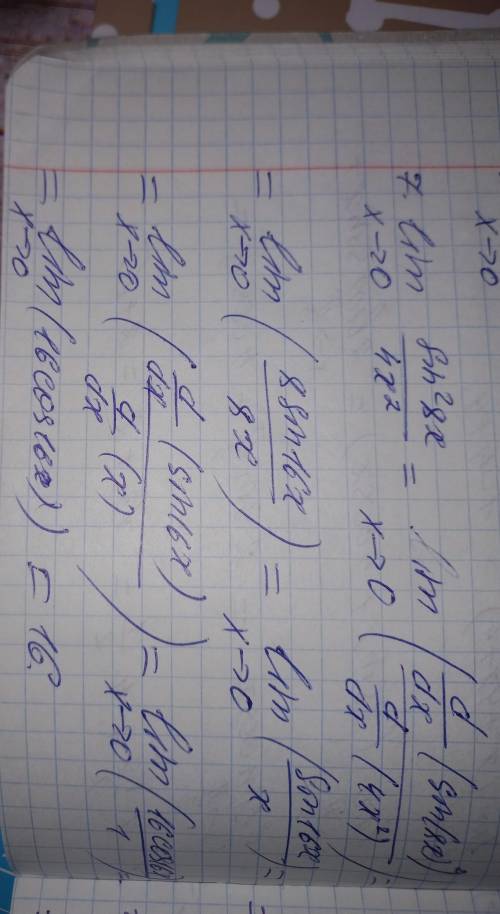 x→0
7. lim x→0 sin²8x / 4x² = lim x→0 ( d/dx (sin(8x)²) / d/dx (4x²) ) =
= lim x→0 ( 8 sin 16x / 8x ) = lim x→0 ( sin 16x / x ) =
= lim x→0 ( d/dx (sin 16x) / d/dx (x) ) = lim x→0 ( 16 cos 16x / 1 )
= lim x→0 (16 cos(16x)) = 16